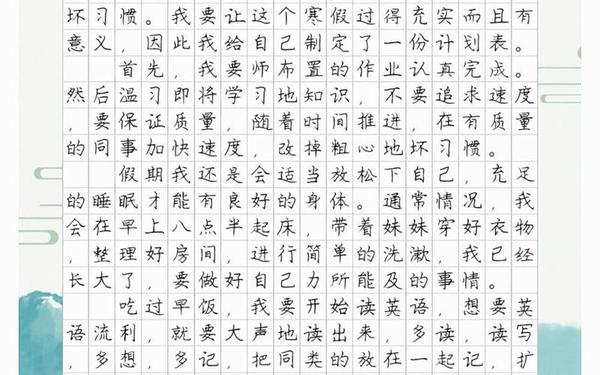 坏习惯。我要让这个寒假过得充实而且有
意义，因此我给自己制定了一份计划表。
首先，我要师布置的作业认真完成。
然后温习即将学习地知识，不要追求速度
，要保证质量，随着时间推进，在有质量
的同事加快速度，改掉粗心地坏习惯。
假期我还是会适当放松下自己，充足
的睡眠才能有良好的身体。通常情况，我
会在早上八点半起床，带着妹妹穿好衣物
，整理好房间，进行简单的洗漱，我已经
长大了，要做好自己力所能及的事情。
吃过早饭，我要开始读英语，想要英
语流利，就要大声地读出来，多读，读写
，多想，多记，把同类的放在一起记，扩